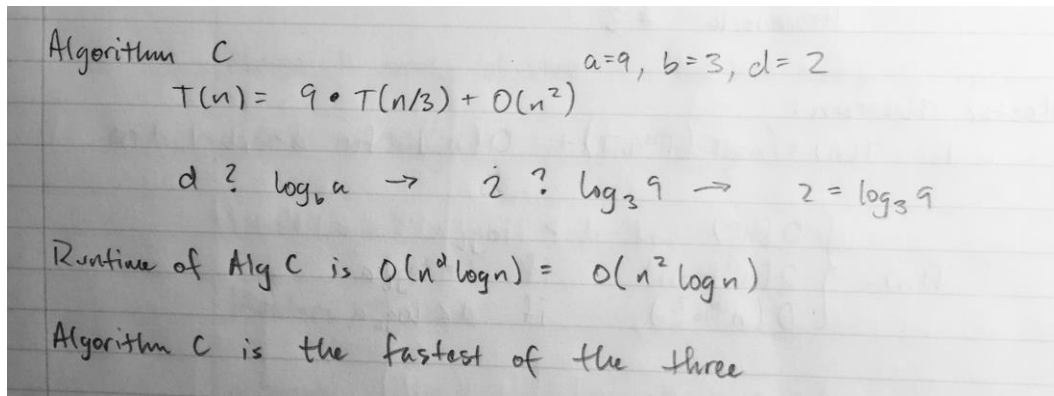 Algorithm C
a=9, b=3, d= 2
T(n) = 9 • T(n/3) + O(n²)
d ? log_b a → 2 ? log₃ 9 → 2 = log₃ 9
Runtime of Alg C is O(n^d logn) = O(n² logn)
Algorithm C is the fastest of the three